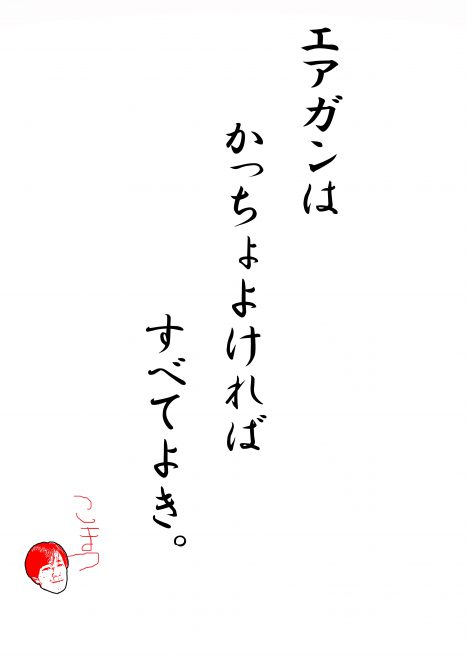 エアガンは
かっちょよければ
すべてよき。